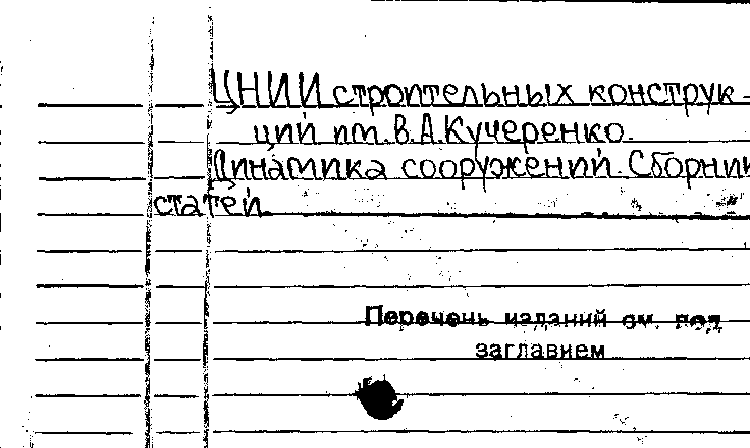 ЦНИИ строительных конструк-
ций им. В.А.Кучеренко.
Динамика сооружений. Сборник
статей.
Перечень изданий см. под
заглавием